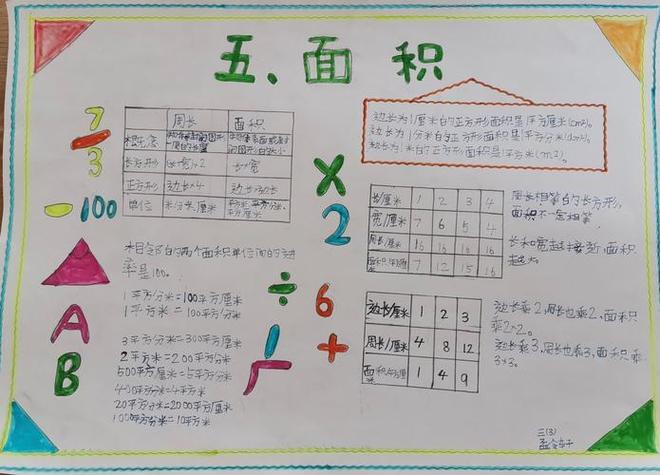 五、面积
7
3
-100
A
B
周长 面积
概念
长方形 (长+宽)×2 长×宽
正方形 边长×4 边长×边长
单位 米 分米、厘米 平方米、平方分米、
平方厘米
相邻的两个面积单位间的进
率是100。
1平方分米=100平方厘米
1平方米=100平方分米
3平方分米=300平方厘米
2平方米=200平方分米
500平方厘米=5平方分米
400平方分米=4平方米
20平方分米=2000平方厘米
1000平方分米=10平方米
×
2
÷
6
+
边长为1厘米的正方形面积是1平方厘米(cm²)。
边长为1分米的正方形面积是1平方分米(dm²)。
边长为1米的正方形面积是1平方米(m²)。
长/厘米 1 2 3 4
宽/厘米 7 6 5 4
周长/厘米 16 16 16 16
面积/平方厘米 7 12 15 16
周长相等的长方形,
面积不一定相等。
长和宽越接近,面积
越大。
边长/厘米 1 2 3
周长/厘米 4 8 12
面积/平方厘米 1 4 9
边长乘2,周长也乘2,面积只
乘2×2。
边长乘3,周长也乘3,面积只乘
3×3。
三(3)